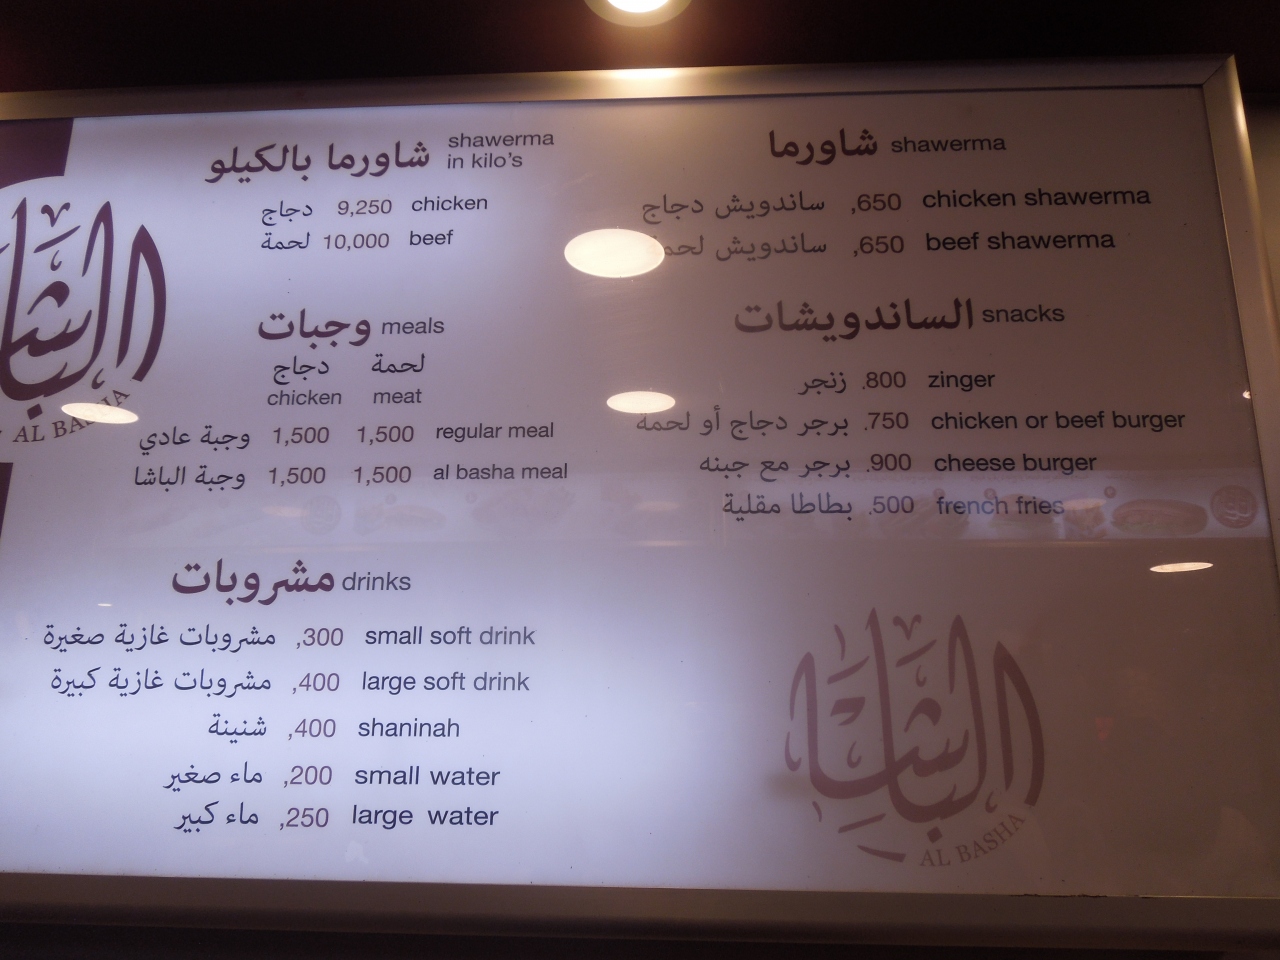 شاورما بالكيلو shawerma in kilo's
دجاج 9,250 chicken
لحمة 10,000 beef
وجبات meals
دجاج لحمة
chicken meat
وجبة عادي 1,500 1,500 regular meal
وجبة الباشا 1,500 1,500 al basha meal
مشروبات drinks
مشروبات غازية صغيرة ,300 small soft drink
مشروبات غازية كبيرة ,400 large soft drink
شنينة ,400 shaninah
ماء صغير ,200 small water
ماء كبير ,250 large water
شاورما shawerma
ساندويش دجاج ,650 chicken shawerma
ساندويش لحمة ,650 beef shawerma
الساندويشات snacks
زنجر .800 zinger
برجر دجاج أو لحمة .750 chicken or beef burger
برجر مع جبنه .900 cheese burger
بطاطا مقلية .500 french fries
الباشا
AL BASHA
الباشا
AL BASHA